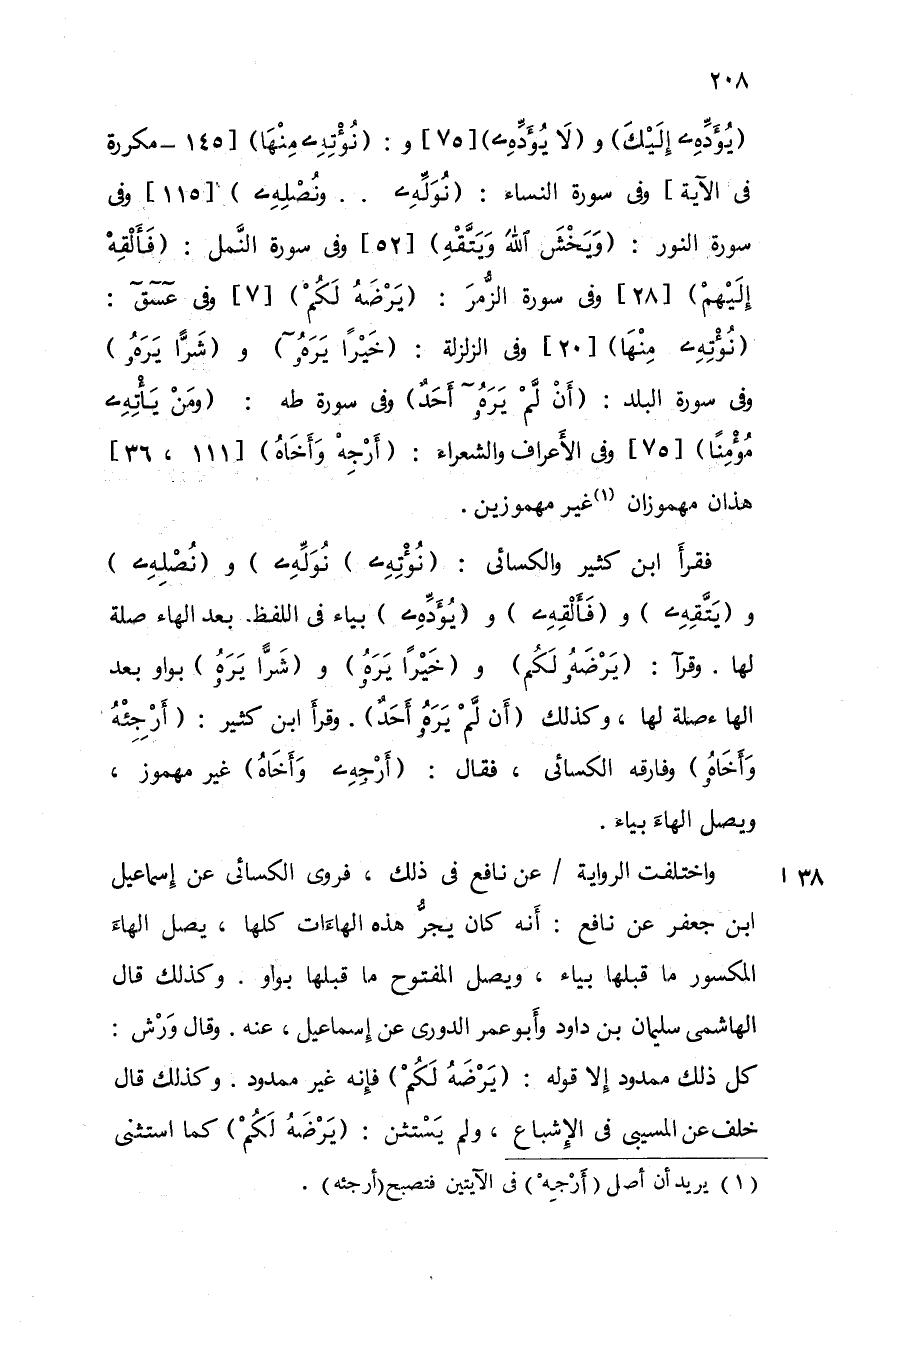 ٢٠٨
(يُؤَدِّهِۦ إِلَيْكَ) و (لَا يُؤَدِّهِۦ)[٧٥] و : (نُؤْتِهِۦ مِنْهَا) [١٤٥ – مكررة
فى الآية] وفى سورة النساء : (نُوَلِّهِۦ . . ونُصْلِهِۦ ) [١١٥] وفى
سورة النور : (وَيَخْشَ ٱللهَ وَيَتَّقْهِ) [٥٢] وفى سورة النَّمل : (فَأَلْقِهْ
إِلَيْهِمْ) [٢٨] وفى سورة الزُّمرَ : (يَرْضَهُ لَكُمْ) [٧] وفى عَسَقَ :
(نُؤْتِهِۦ مِنْهَا) [٢٠] وفى الزلزلة : (خَيْرًا يَرَهُۥٓ) و (شَرًّا يَرَهُۥ )
وفى سورة البلد : (أَنْ لَّمْ يَرَهُۥٓ أَحَدٌ) وفى سورة طه : (ومَنْ يَأْتِهِۦ
مُؤْمِنًا) [٧٥] وفى الأَعراف والشعراء : (أَرْجِهْ وَأَخَاهُ) [١١١ ، ٣٦]
هذان مهموزان (١)غير مهموزين .
فقرأَ ابن كثير والكسائى : (نُؤْتِهِۦ ) نُوَلِّهِۦ ) و (نُصْلِهِۦ )
و (يَتَّقِهِۦ ) و (فَأَلْقِهِۦ ) و (يُؤَدِّهِۦ ) بياء فى اللفظ. بعد الهاء صلة
لها . وقرآ : (يَرْضَهُۥ لَكُم) و (خَيْرًا يَرَهُۥ) و (شَرًّا يَرَهُۥ ) بواو بعد
الهاء صلة لها ، وكذلك (أَن لَّمْ يَرَهُۥ أَحَدٌ) . وقرأَ ابن كثير : (أَرْجِئْهُ
وَأَخَاهُۥ ) وفارقه الكسائى ، فقال : (أَرْجِهِۦ وَأَخَاهُ) غير مهموز ،
ويصل الهاءَ بياء .
واختلفت الرواية / عن نافع فى ذلك ، فروى الكسائى عن إسماعيل ٣٨ ا
ابن جعفر عن نافع : أَنه كان يجرُّ هذه الهاءَات كلها ، يصل الهاءَ
المكسور ما قبلها بياء ، ويصل المفتوح ما قبلها بواو . وكذلك قال
الهاشمى سليمان بن داود وأَبو عمر الدورى عن إسماعيل ، عنه . وقال وَرْش :
كل ذلك ممدود إلا قوله : (يَرْضَهُ لَكُمْ) فإنه غير ممدود . وكذلك قال
خلف عن المسيبى فى الإشباع ، ولم يَسْتثن : (يَرْضَهُ لَكُمْ) كما استثنى
(١) يريد أن أصل (أَرْجِهْ) فى الآيتين فتصبح(أرجئه) .